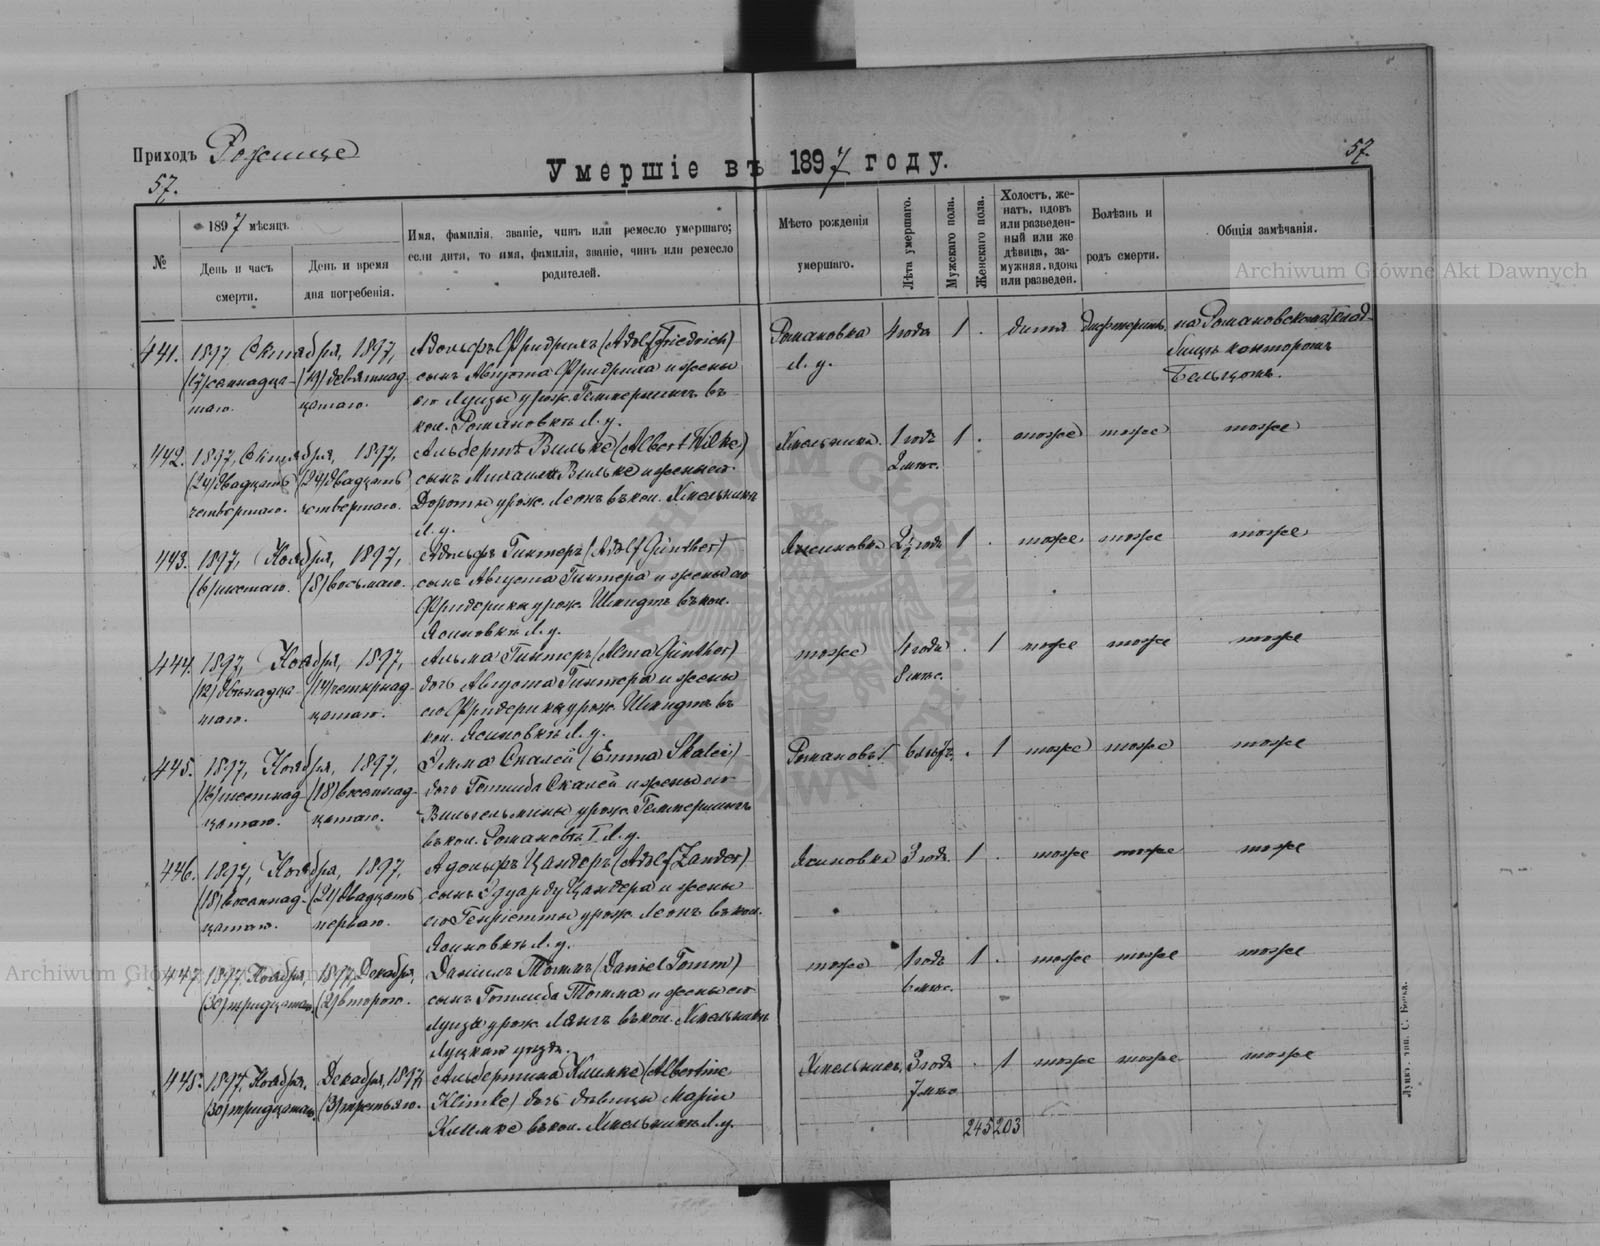 Приходъ Рожище
57.
Умершіе въ 1897 году.
57.
№
1897 мѣсяцъ
День и часъ
смерти.
День и время
дня погребенія.
Имя, фамилія, званіе, чинъ или ремесло умершаго;
если дитя, то имя, фамилія, званіе, чинъ или ремесло
родителей.
Мѣсто рожденія
умершаго.
Лѣта умершаго.
Мужскаго пола.
Женскаго пола.
Холостъ, же-
натъ, вдовъ
или разведен-
ный или же
дѣвица, за-
мужняя, вдова
или разведен.
Болѣзнь и
родъ смерти.
Общія замѣчанія.
441. 1897 Октября, 1897,
(17) семнадца- (19) девятнад-
таго. цатаго.
Адольфъ Фридрихъ (Adolf Friedrich)
сынъ Августа Фридриха и жены
его Луизы урож. въ
кол. Романовкѣ Л. у.
Романовка 4 года 1 . дитя дифтеритъ на Романовскомъ клад-
Л. у.
бищѣ канторомъ
442. 1897, Октября, 1897,
(24) двадцать (24) двадцать
четвертаго. четвертаго.
Альбертъ Вильке (Albert Wilke)
сынъ Михаила Вильке и жены его
Дороты урож. Леонъ въ кол. Хмельникѣ
Л. у.
Хмельникъ 1 годъ 1 . тоже тоже тоже
2 мѣс.
443. 1897, Ноября, 1897,
(6) шестаго. (8) восьмаго.
Адольфъ Гинтеръ (Adolf Günther)
сынъ Августа Гинтера и жены его
Фридерики урож. Шмидтъ въ кол.
Ясиновкѣ Л. у.
Ясиновка 2½ года 1 . тоже тоже тоже
444. 1897, Ноября, 1897,
(12) двѣнадца- (14) четырнад-
таго. цатаго.
Альма Гинтеръ (Alma Günther)
дочь Августа Гинтера и жены
его Фридерики урож. Шмидтъ въ
кол. Ясиновкѣ Л. у.
тоже 4 года . 1 тоже тоже тоже
8 мѣс.
445. 1897, Ноября, 1897,
(16) шестнад- (18) восемнад-
цатаго. цатаго.
Эмма Скалей (Emma Skalei)
дочь Готлиба Скалей и жены его
Вильгельмины урож.
въ кол. Романовкѣ I Л. у.
Романовк. I 6 . 1 тоже тоже тоже
446. 1897, Ноября, 1897,
(18) восемнад- (21) двадцать
цатаго. перваго.
Адольфъ Цандеръ (Adolf Zander)
сынъ Эдуарда Цандера и жены
его Генріетты урож. Леонъ въ кол.
Ясиновкѣ Л. у.
Ясиновка 3 года 1 . тоже тоже тоже
447. 1897, Ноября, 1897, Декабря,
(30) тридцатаго, (2) второго.
Даніилъ Томмъ (Daniel Tomm)
сынъ Готлиба Томма и жены его
Луизы урож. Лангъ въ кол. Хмельникѣ
Луцкаго уѣзда.
тоже 1 годъ 1 . тоже тоже тоже
6 мѣс.
448. 1897 Ноября, Декабря, 1897,
(30) тридцатаго, (3) третьяго.
Альбертина Климке (Albertine
Klimke) дочь дѣвицы Маріи
Климке въ кол. Хмельникѣ Л. у.
Хмельникъ 3 года . 1 тоже тоже тоже
7 мѣс.
245 203
Луцкъ. тип. С. Бекка.
Archiwum Główne Akt Dawnych
Archiwum Główne